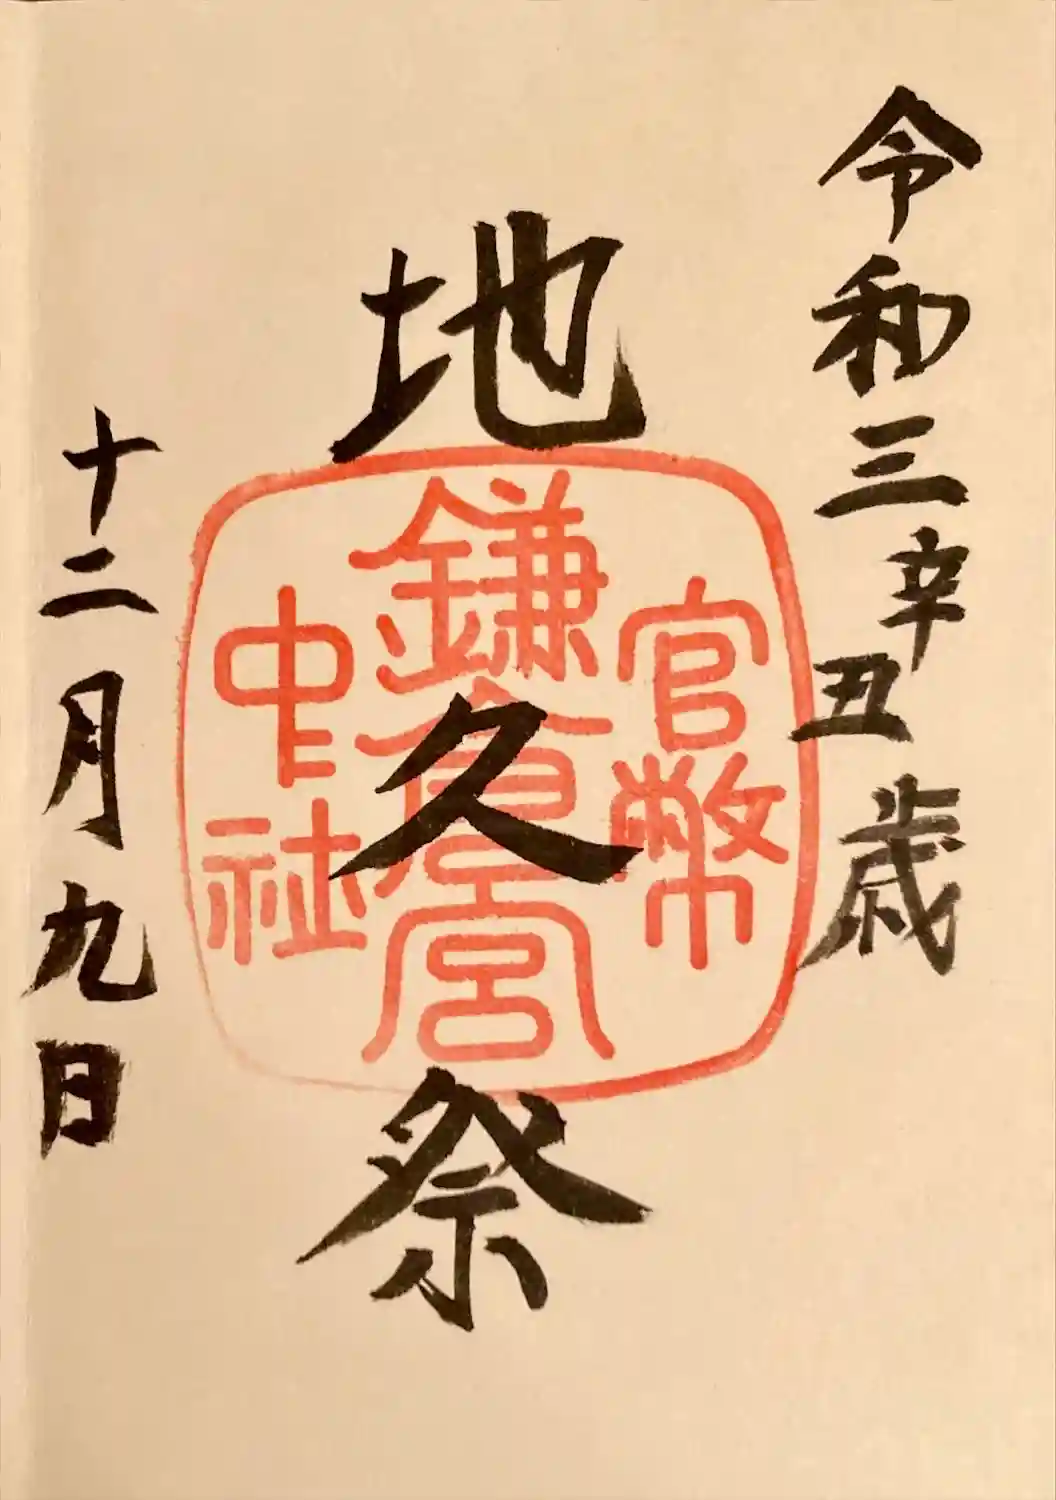 令和三辛丑歳
地久祭
十二月九日
官幣
鎌倉宮
中社